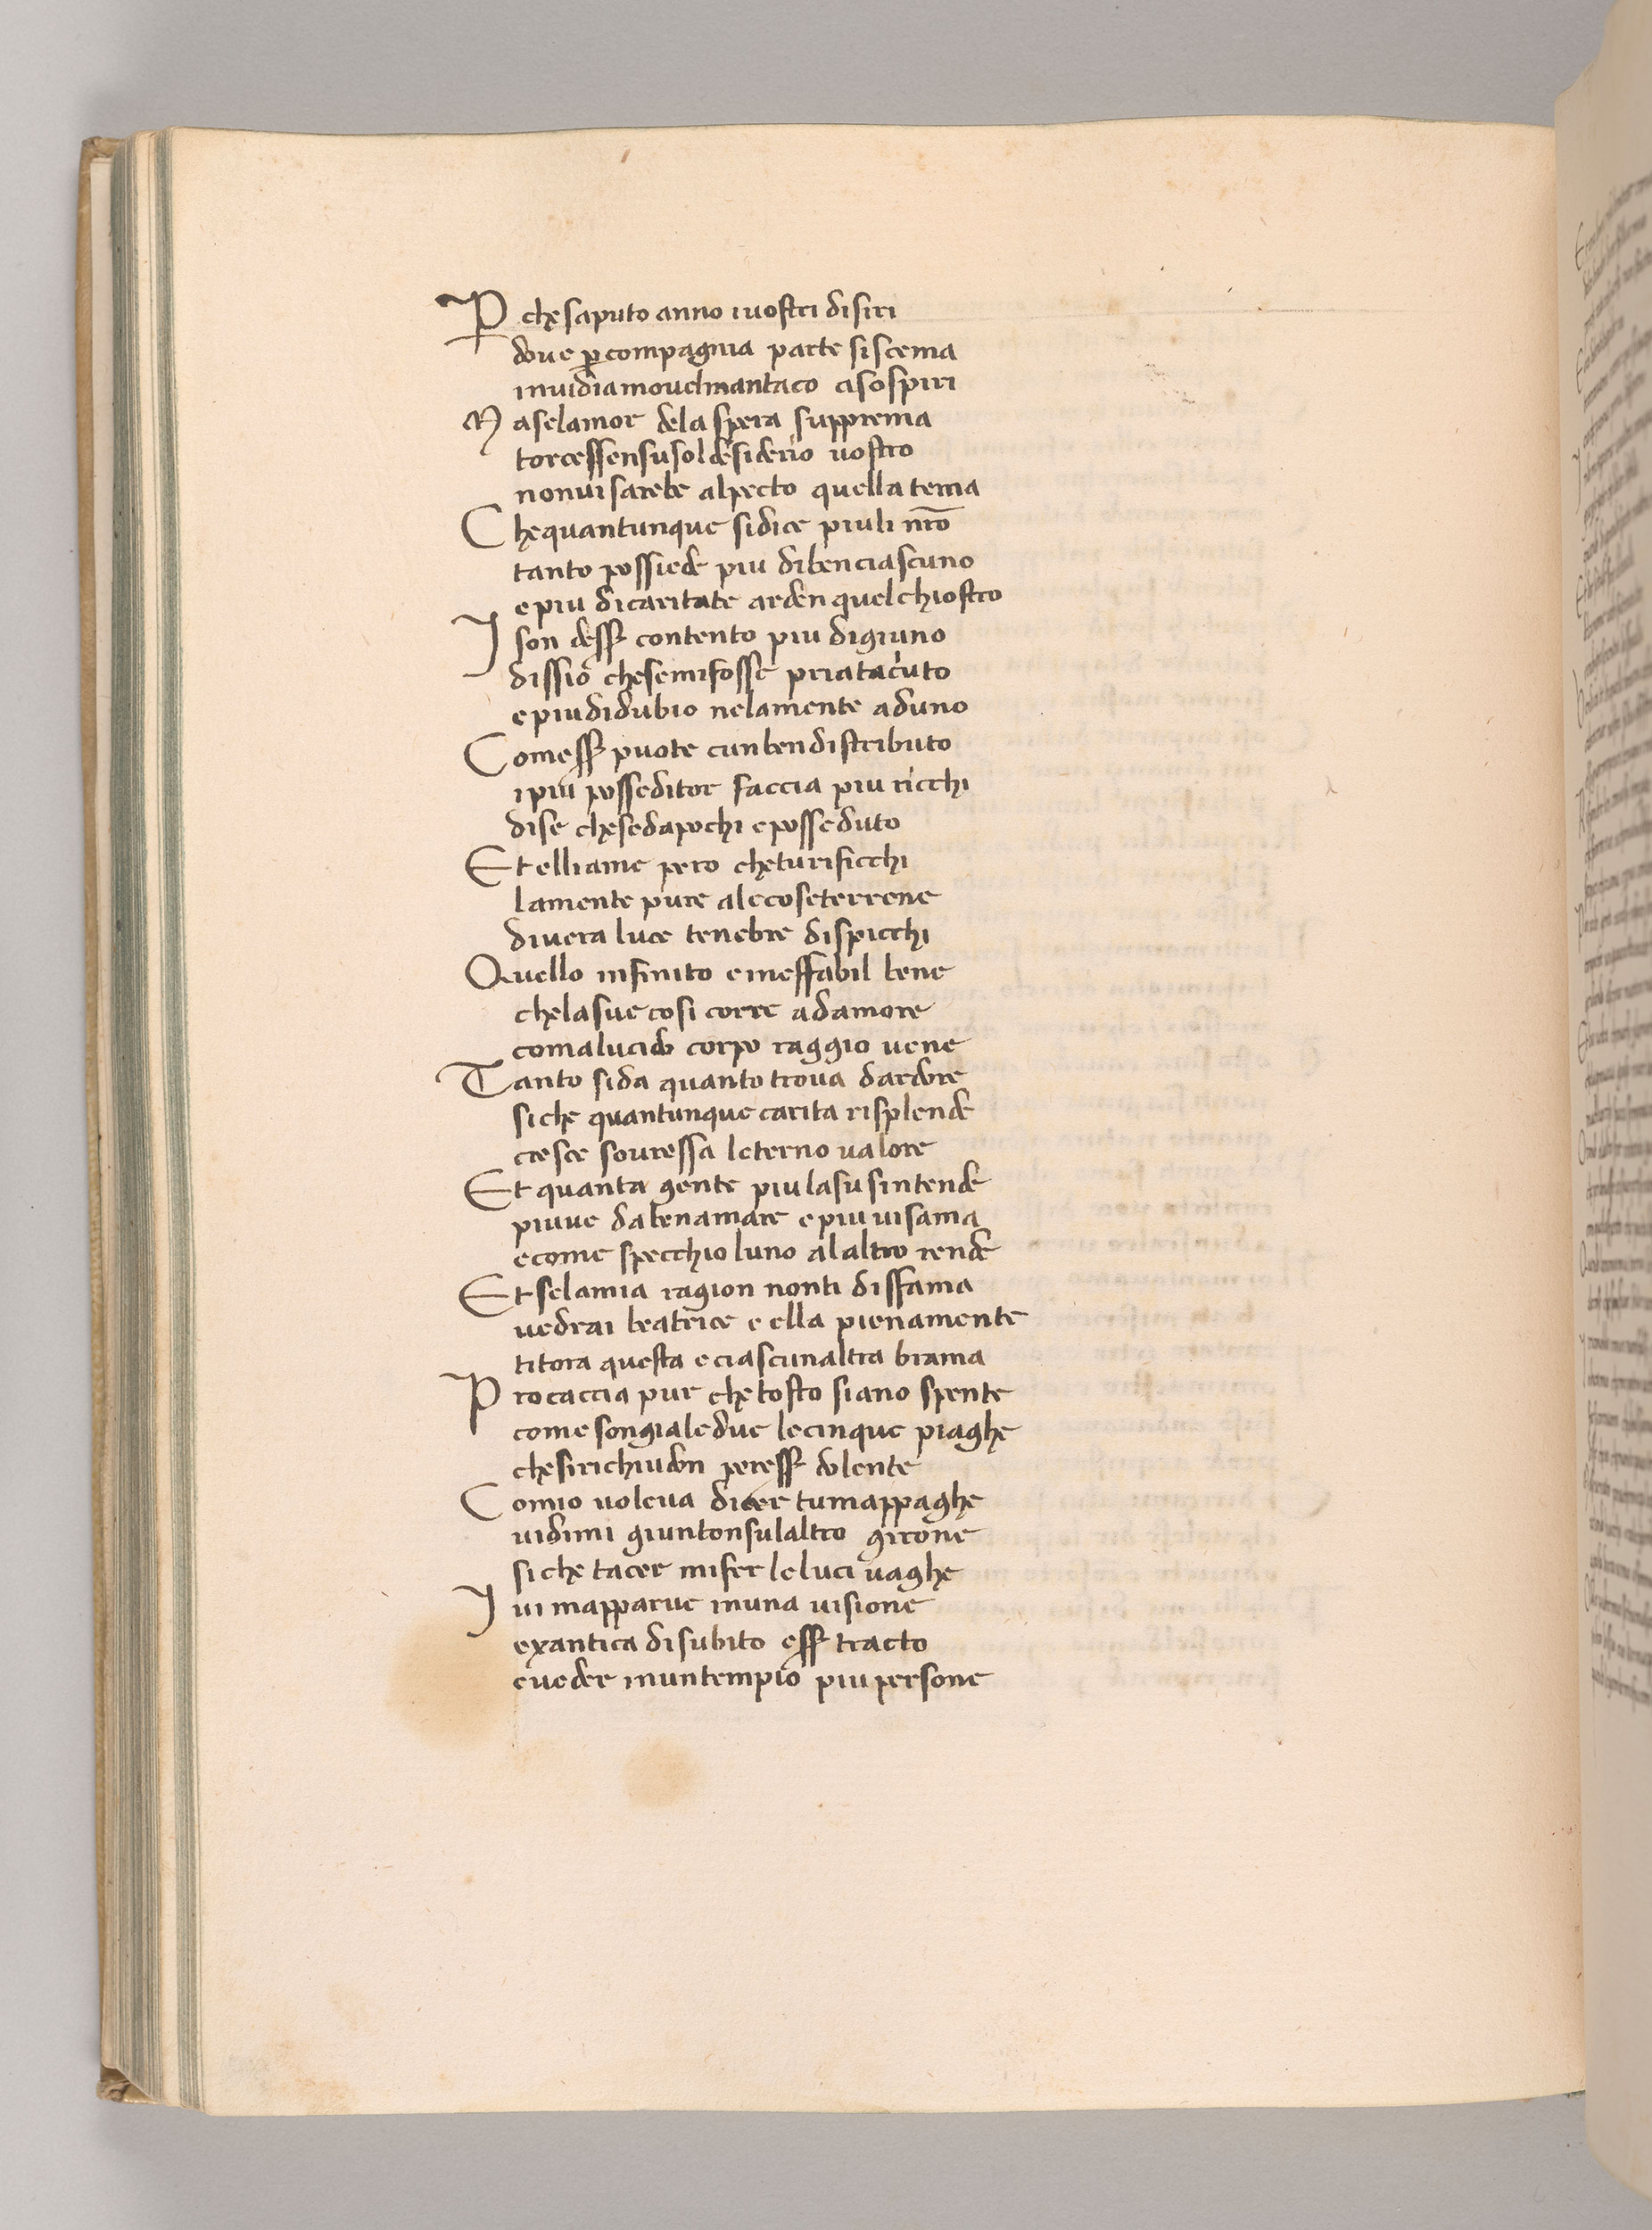 P chę saputo anno i uostri disiri
doue ꝑ compagnia parte si scema
inuidia mouelmantaco aisospiri
M aselamor dela spera supprema
torcessensusol desiderio uostro
nonui sarebe alpecto quella tema
C hęquantunque sidice piuli nr̄o
tanto possiede piu dibenciascuno
epiu dicaritate arden quelchiostro
I son dess̄ contento piu digiuno
dissio chesemifosse priataciuto
epiudidubio nelamente aduno
C omess̄ puote cunbendistributo
ipiu posseditor faccia piu ricchi
dise chęsedapochi eposseduto
Et elliame pero chęturificchi
lamente pure alecoseterrene
diuera luce tenebre dispicchi
Quello infinito eineffabil bene
chęlasue cosi corre adamore
comalucido corpo raggio uene
Tanto sida quanto troua dardore
sichę quantunque carita risplende
cresce souressa leterno ualore
Et quanta gente piulasusintende
piuue dabenamare epiuuisama
ecome specchio luno alaltro rende
Et selamia ragion nonti disfama
uedrai beatrice e ella pienamente
titora questa eciascunaltra brama
P rocaccia pur chętosto siano spente
come songialedue lecinque piaghę
chęsirichiudon peress̄ dolente
C omio voleua dicer tumappaghę
uidimi giuntonsulaltro girone
sichę tacer mifer leluci uaghę
I ui mapparue inuna uisione
exantica disubito ess̄ tracto
eueder inuntempio piupersone